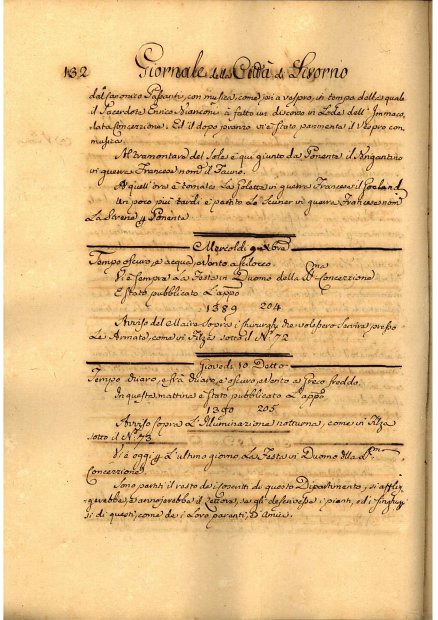 132 Giornale della Città di Livorno
dal Canonico Passanti, con musica, come poi a vespro, in tempo delle quale
il Sacerdote Enrico Bianconi à fatto un discorso in Lode dell'Immaco,
lata Concezione. Ed il dopo pranzo vi è stato parimente il Vespro con
musica.
Al tramontare del Sole è qui giunto da Ponente il Brigantino
in guerra Francese nom.º il Fauno.
A quell'ora è tornata La Goletta in guerra Francese il Goeland
Un poco più tardi è partito Lo Scuner in guerra Francese nom
La Sirene p Ponente
Mercoldì 9 Xbre
Tempo oscuro, e acqua, Vento a Scilocco.
Vi è sempre La Festa in Duomo della SS.ma Concezione
È stato pubblicato L'app.o
1389 204
Avviso del Maire sopra i chirurghi che volessero servire presso
Le Armate, come in Filza sotto il N.º 72
Giovedì 10 Detto
Tempo chiaro, e frà chiaro, e oscuro, e Vento a Greco freddo.
In questa mattina è stato pubblicato L'app.o
1390 205
Avviso sopra L'Illuminazione notturna, come in Filza
sotto il N.º 73
Vi è oggi p L'ultimo giorno La Festa in Duomo della SS.ma
Concezione
Sono partiti il resto de' coscritti di questo Dipartimento, si afflig,
gerebbe, e annojerebbe il Lettore, se gli descrivessi i pianti, ed i singhiozz
zi di questi, come de i Loro parenti, e Amici.